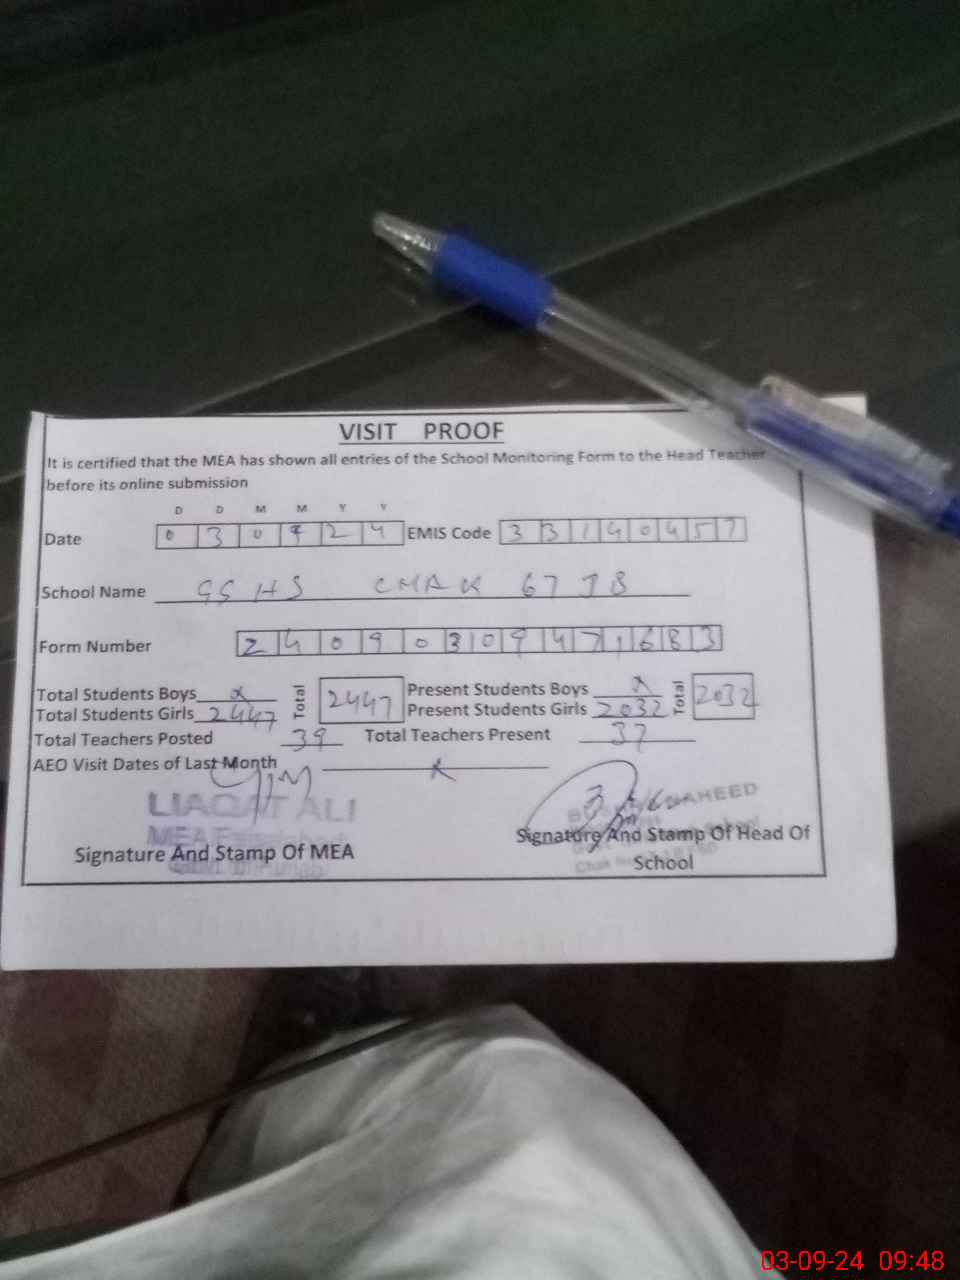 VISIT PROOF
It is certified that the MEA has shown all entries of the School Monitoring Form to the Head Teacher
before its online submission
D D M M Y Y
Date 0 3 0 9 2 4 EMIS Code 3 3 1 4 0 4 5 7
School Name GGHS CHAK 67 JB
Form Number 2 4 0 9 0 3 0 9 4 7 1 6 8 3
Total Students Boys x Total 2447 Present Students Boys x Total 2032
Total Students Girls 2447 Present Students Girls 2032
Total Teachers Posted 39 Total Teachers Present 37
AEO Visit Dates of Last Month x
LIAQAT ALI
MEA Faisalabad
Signature And Stamp Of MEA
NAHEED
Signature And Stamp Of Head Of
School
03-09-24 09:48